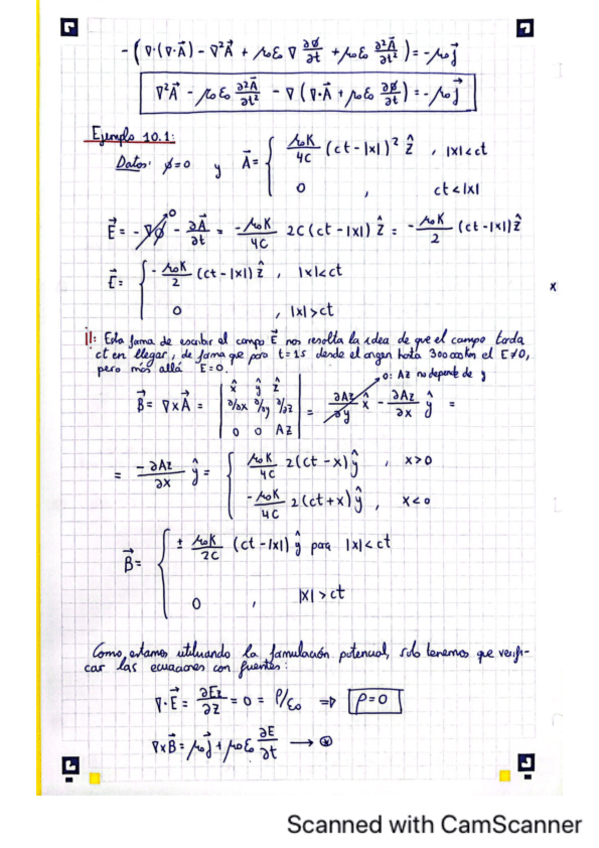 - (∇·(∇·A⃗) - ∇²A⃗ + μ₀ε₀ ∇ ∂ø/∂t + μ₀ε₀ ∂²A⃗/∂t²) = -μ₀j⃗
∇²A⃗ - μ₀ε₀ ∂²A⃗/∂t² - ∇(∇·A⃗ + μ₀ε₀ ∂ø/∂t) = -μ₀j⃗
Ejemplo 10.1:
Datos: ø=0 y A⃗ = { μ₀K/4C (ct-|x|)² ẑ , |x|<ct
0 , ct<|x|
E⃗ = -∇ø (→0) - ∂A⃗/∂t = -μ₀K/4C 2C(ct-|x|) ẑ = -μ₀K/2 (ct-|x|)ẑ
E⃗ = { -μ₀K/2 (ct-|x|) ẑ , |x|<ct
0 , |x|>ct
x
¡!: Esta forma de escribir el campo E⃗ nos resalta la idea de que el campo tarda
ct en llegar, de forma que para t=1s desde el origen hasta 300000km el E≠0,
pero más allá E=0.
0: Az no depende de y
B⃗ = ∇×A⃗ = | x̂ ŷ ẑ ; ∂/∂x ∂/∂y ∂/∂z ; 0 0 Az | = ∂Az/∂y x̂ - ∂Az/∂x ŷ =
= -∂Az/∂x ŷ = { μ₀K/4C 2(ct-x)ŷ , x>0
-μ₀K/4C 2(ct+x)ŷ , x<0
B⃗ = { ± μ₀K/2C (ct-|x|) ŷ para |x|<ct
0 , |x|>ct
Como estamos utilizando la formulación potencial, solo tenemos que verifi-
car las ecuaciones con fuentes:
∇·E⃗ = ∂Ez/∂z = 0 = ρ/ε₀ ⇒ ρ=0
∇×B⃗ = μ₀j⃗ + μ₀ε₀ ∂E/∂t → ⊛
Scanned with CamScanner